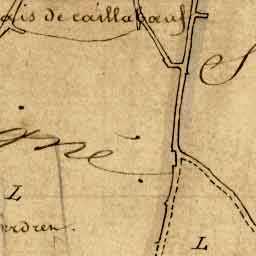 ais de caillabœuf
S
igné
L
erdren.
L